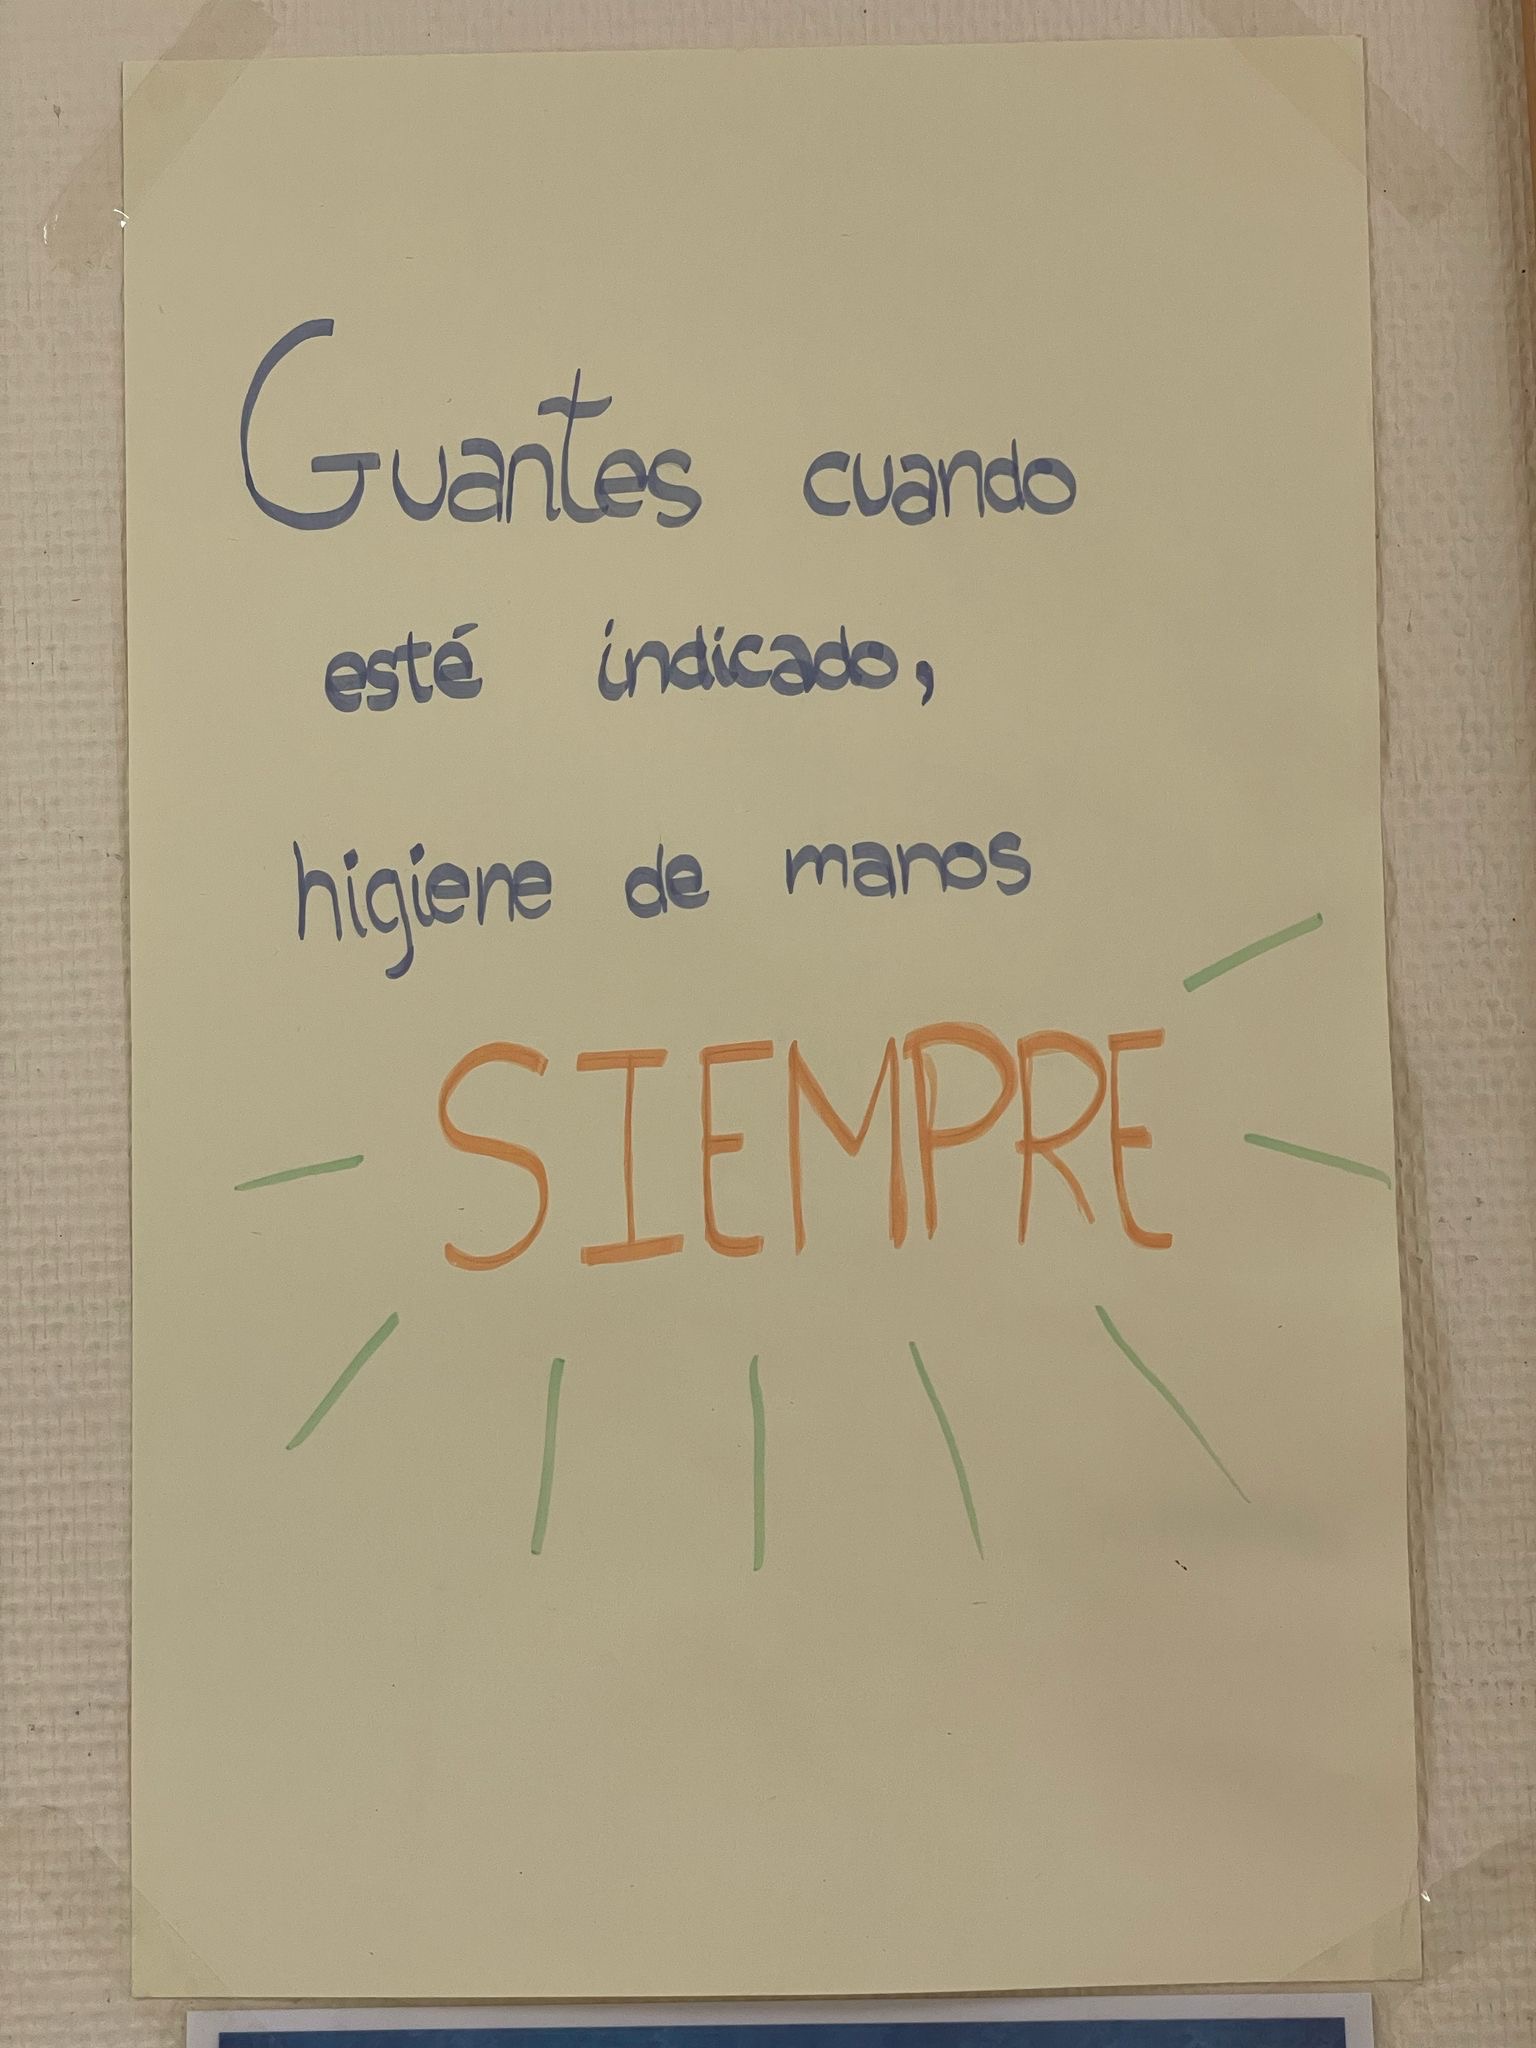 Guantes cuando
esté indicado,
higiene de manos
SIEMPRE